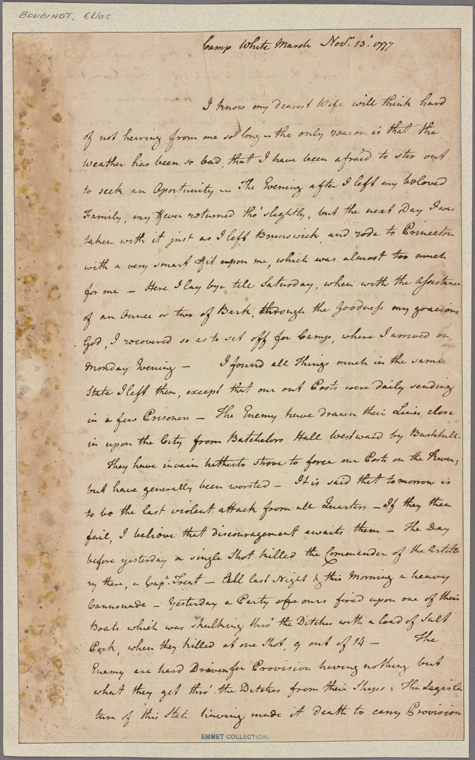 BOUDINOT, Elias
Camp White Marsh Nov. 13. 1777
I know my dearest Wife will think hard
of not hearing from me so long – the only reason is that the
Weather has been so bad that I have been afraid to stir out
to seek an Oportunity – The Evening after I left my beloved
Family, my Fever returned tho' slightly, but the next Day I was
taken with it just as I left Brunswick, and rode to Princeton
with a very smart fit upon me, which was almost too much
for me – Here I lay bye till Saturday, when with the Assistance
of an Ounce or two of Bark, through the Goodness my gracious
God, I recovered so as to set off for Camp, where I arrived on
Monday Evening – I found all Things much in the same
State I left them, except that our out Posts were daily sending
in a few Prisoners – The Enemy have drawn their Lines close
in upon the City from Batchelors Hall Westward by Bushhill.
They have in vain hitherto strove to force our Posts on the River,
but have generally been worsted – It is said that tomorrow is
to be the last violent attack from all Quarters – If they then
fail, I believe that discouragement awaits them – The Day
before yesterday a single Shot killed the Commander of the Artille
ry there, a Capt. Treat – All last Night & this Morning a heavy
Cannonade – Yesterday a Party of ours fired upon one of their
Boats which was Skulking thro' the Ditches with a Load of Salt
Pork, when they killed at one Shot, 9 out of 14 – The
Enemy are hard Driven for Provision having nothing but
what they get thro' the Ditches from their Ships: The Legisla
ture of this State having made it death to carry Provision
EMMET COLLECTION.